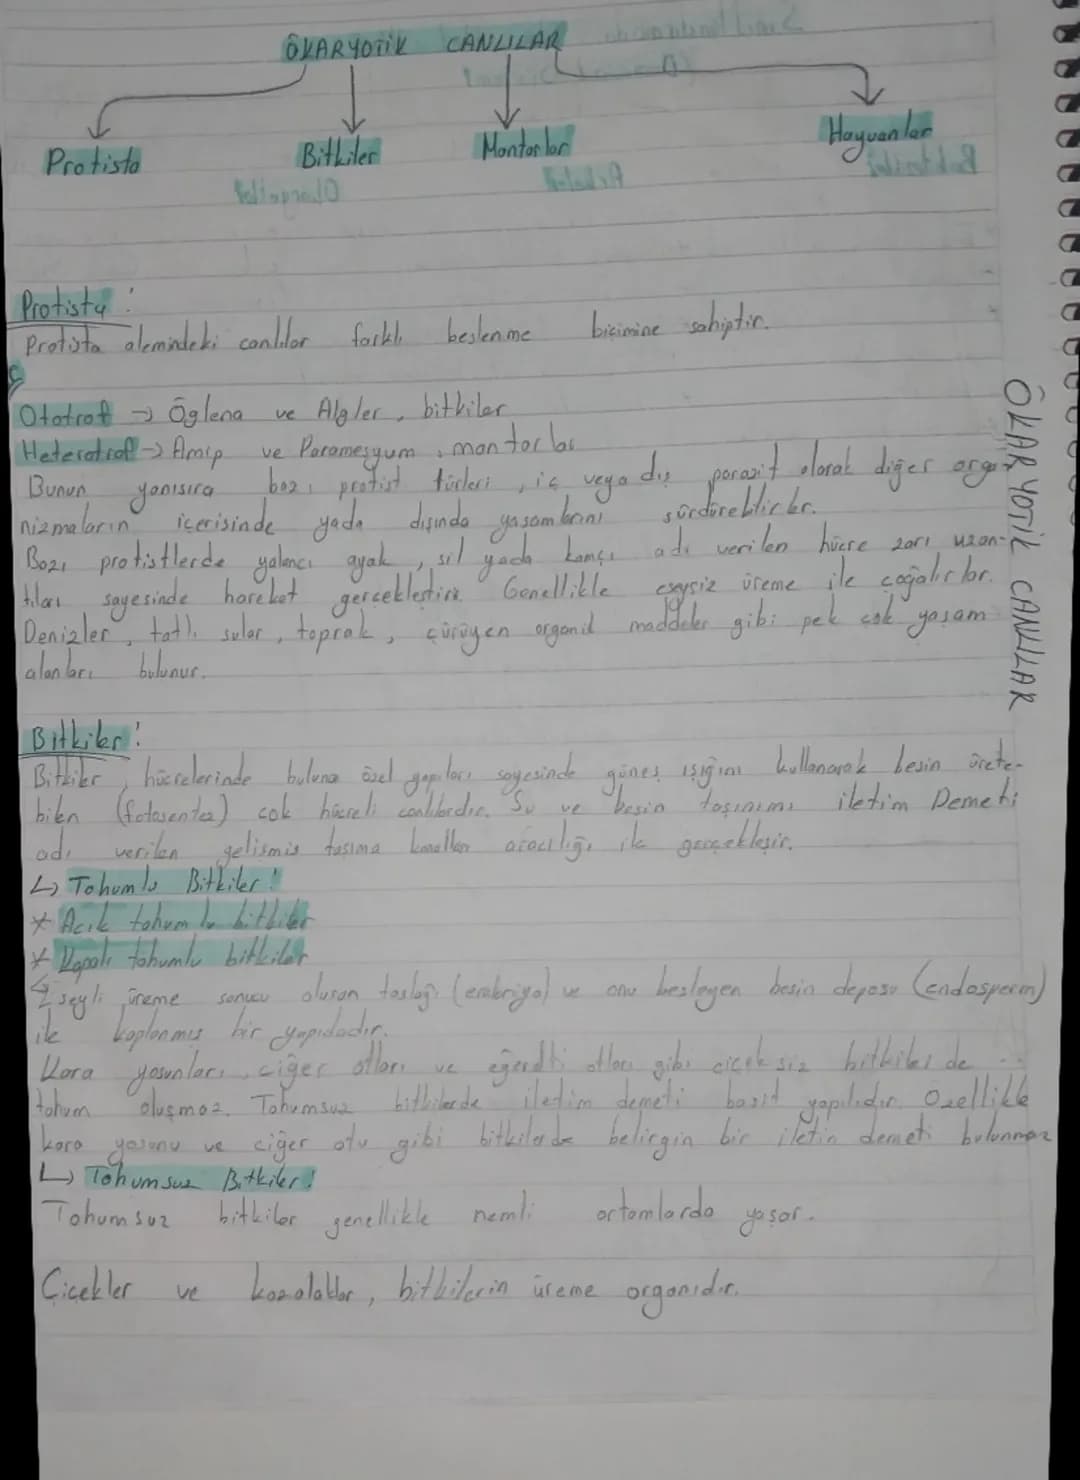 ÖKARYOTİK CANLILAR
Protista Bitkiler Mantarlar Hayvanlar
Protista:
Protista alemindeki canlılar farklı beslenme biçimine sahiptir.
Ototrof → Öglena ve Algler, bitkiler
Heterotrof → Amip ve Paramesyum, mantarlar
Bunun yanısıra bazı protist türleri, iç veya dış parazit olarak diğer orga-
nizmaların içerisinde yada dışında yaşamlarını sürdürebilirler.
Bazı protistlerde yalancı ayak, sil yada kamçı adı verilen hücre zarı uzan-
tıları sayesinde hareket gerçekleştirir. Genellikle eşeysiz üreme ile çoğalırlar.
Denizler, tatlı sular, toprak, çürüyen organik maddeler gibi pek çok yaşam
alanları bulunur.
Bitkiler:
Bitkiler, hücrelerinde buluna özel yapıları sayesinde güneş ışığını kullanarak besin ürete-
bilen (fotosentez) çok hücreli canlılardır. Su ve besin taşınımı iletim Demeti
adı verilen gelişmiş taşıma kanalları aracılığı ile gerçekleşir.
↳ Tohumlu Bitkiler:
* Açık tohumlu bitkiler
* Kapalı tohumlu bitkiler
↳ Eşeyli üreme sonucu oluşan taslağı (embriyo) ve onu besleyen besin deposu (endosperm)
ile kaplanmış bir yapıdadır.
Kara yosunları, ciğer otları ve eğrelti otları gibi çiçeksiz bitkiler de
tohum oluşmaz. Tohumsuz bitkilerde iletim demeti basit yapılıdır. Özellikle
kara yosunu ve ciğer otu gibi bitkilerde belirgin bir iletin demeti bulunmaz
↳ Tohumsuz Bitkiler:
Tohumsuz bitkiler genellikle nemli ortamlarda yaşar.
Çiçekler ve kozalaklar, bitkilerin üreme organıdır.
ÖKARYOTİK CANLILAR